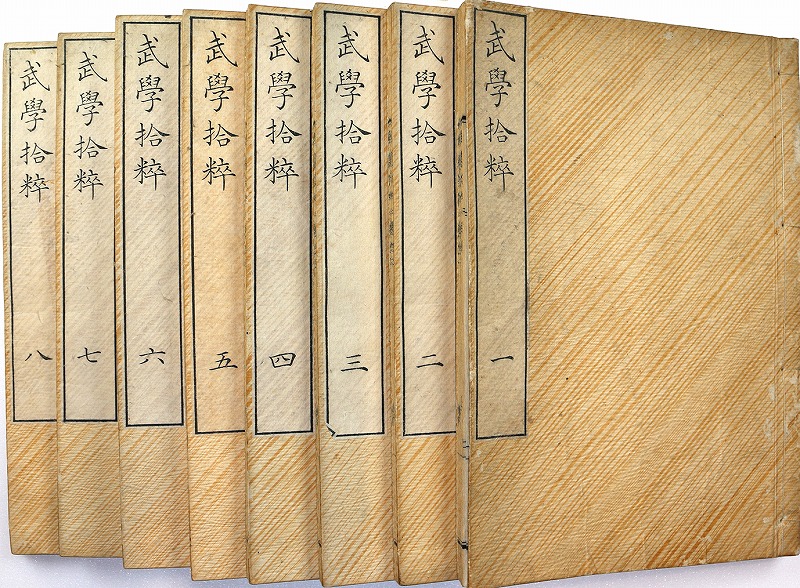 武學拾粹 一
武學拾粹 二
武學拾粹 三
武學拾粹 四
武學拾粹 五
武學拾粹 六
武學拾粹 七
武學拾粹 八